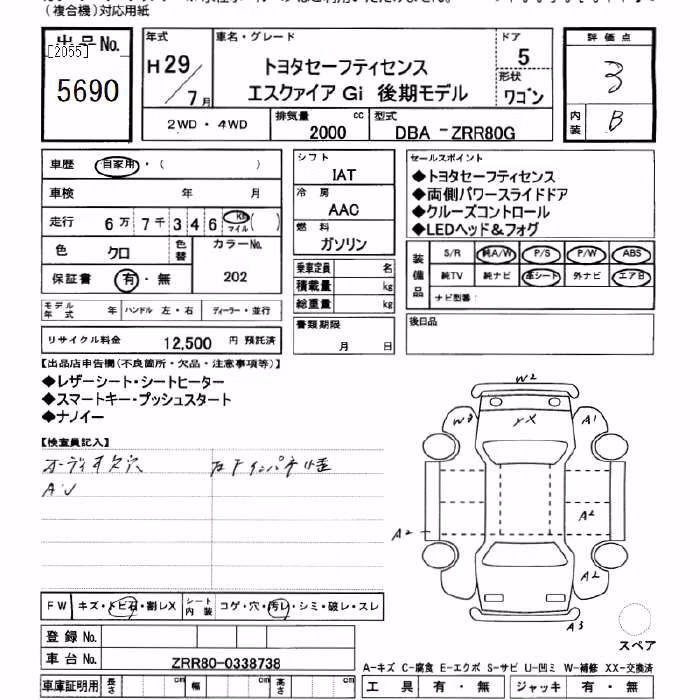 (複合機)対応用紙
出品No.
[2055]
5690
年式 車名・グレード ドア 評価点
H29/7月 トヨタセーフティセンス 5 3
エスクァイア Gi 後期モデル 形状 ワゴン 内装 B
2WD・4WD 排気量 2000 cc 型式 DBA-ZRR80G
車歴 自家用・( )
車検 年 月
走行 6万7千346 Km マイル ( )
色 クロ 色替 カラーNo. 202
保証書 有・無
シフト IAT
冷房 AAC
燃料 ガソリン
乗車定員 名
積載量 kg
総重量 kg
セールスポイント
◆トヨタセーフティセンス
◆両側パワースライドドア
◆クルーズコントロール
◆LEDヘッド&フォグ
装備品 S/R 純A/W P/S P/W ABS
純TV 純ナビ 革シート 外ナビ エアB
ナビ型番:
モデル年式 年 ハンドル 左・右 ディーラー・並行
書類期限 月 日
後日品
リサイクル料金 12,500 円 預託済
【出品店申告欄(不良箇所・欠品・注意事項等)】
◆レザーシート・シートヒーター
◆スマートキー・プッシュスタート
◆ナノイー
【検査員記入】
オーディオ欠穴
AU
W2
W3 YX A1
A2 A2
A2
A3
FW キズ・トビ石・割レX シート内装 コゲ・穴・汚レ・シミ・破レ・スレ
登録No.
車台No. ZRR80-0338738
スペア
A-キズ C-腐食 E-エクボ S-サビ U-凹ミ W-補修 XX-交換済
車庫証明用 長さ cm 幅 cm 高さ cm
工具 有・無 ジャッキ 有・無